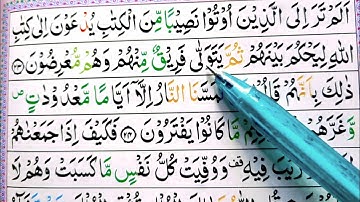 اَلَمْ تَرَ اِلَى الَّذِيْنَ اُوْتُوْا نَصِيْبًا مِّنَ الْكِتٰبِ يُدْعَوْنَ اِلٰى كِتٰبِ
اللّٰهِ لِيَحْكُمَ بَيْنَهُمْ ثُمَّ يَتَوَلّٰى فَرِيْقٌ مِّنْهُمْ وَهُمْ مُّعْرِضُوْنَ ﴿۲۳﴾
ذٰلِكَ بِاَنَّهُمْ قَالُوْا تَمَسَّنَا النَّارُ اِلَّاۤ اَيَّامًا مَّعْدُوْدٰتٍ ص
وَّغَرَّهُمْ مَّا كَانُوْا يَفْتَرُوْنَ ﴿۲۴﴾ فَكَيْفَ اِذَا جَمَعْنٰهُمْ
رَيْبَ فِيْهِ قف وَوُفِّيَتْ كُلُّ نَفْسٍ مَّا كَسَبَتْ وَهُمْ لَا